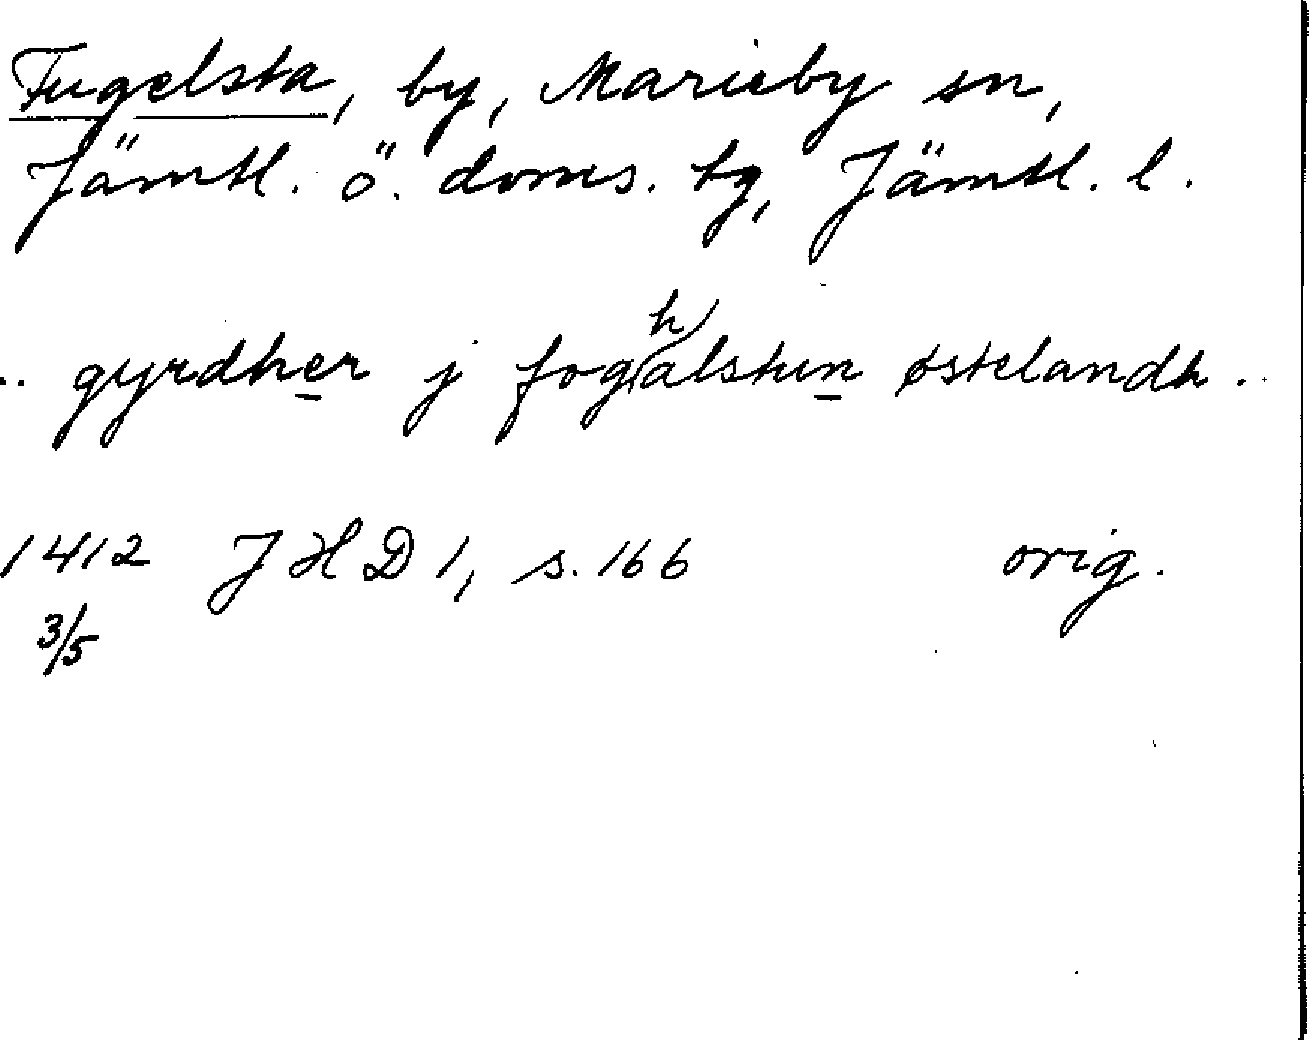 Fugelsta, by, Marieby sn,
Jämtl. ö. doms. tg, Jämtl. l.
.. gyrdher j foghalsten østelandh ..
1412 JHD 1, s. 166 orig.
3/5